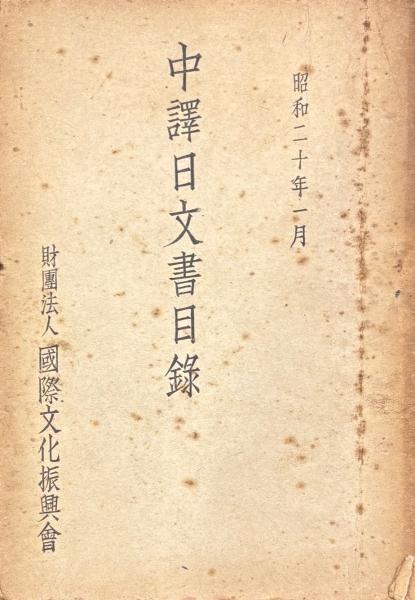 昭和二十年一月
中譯日文書目錄
財團法人 國際文化振興會